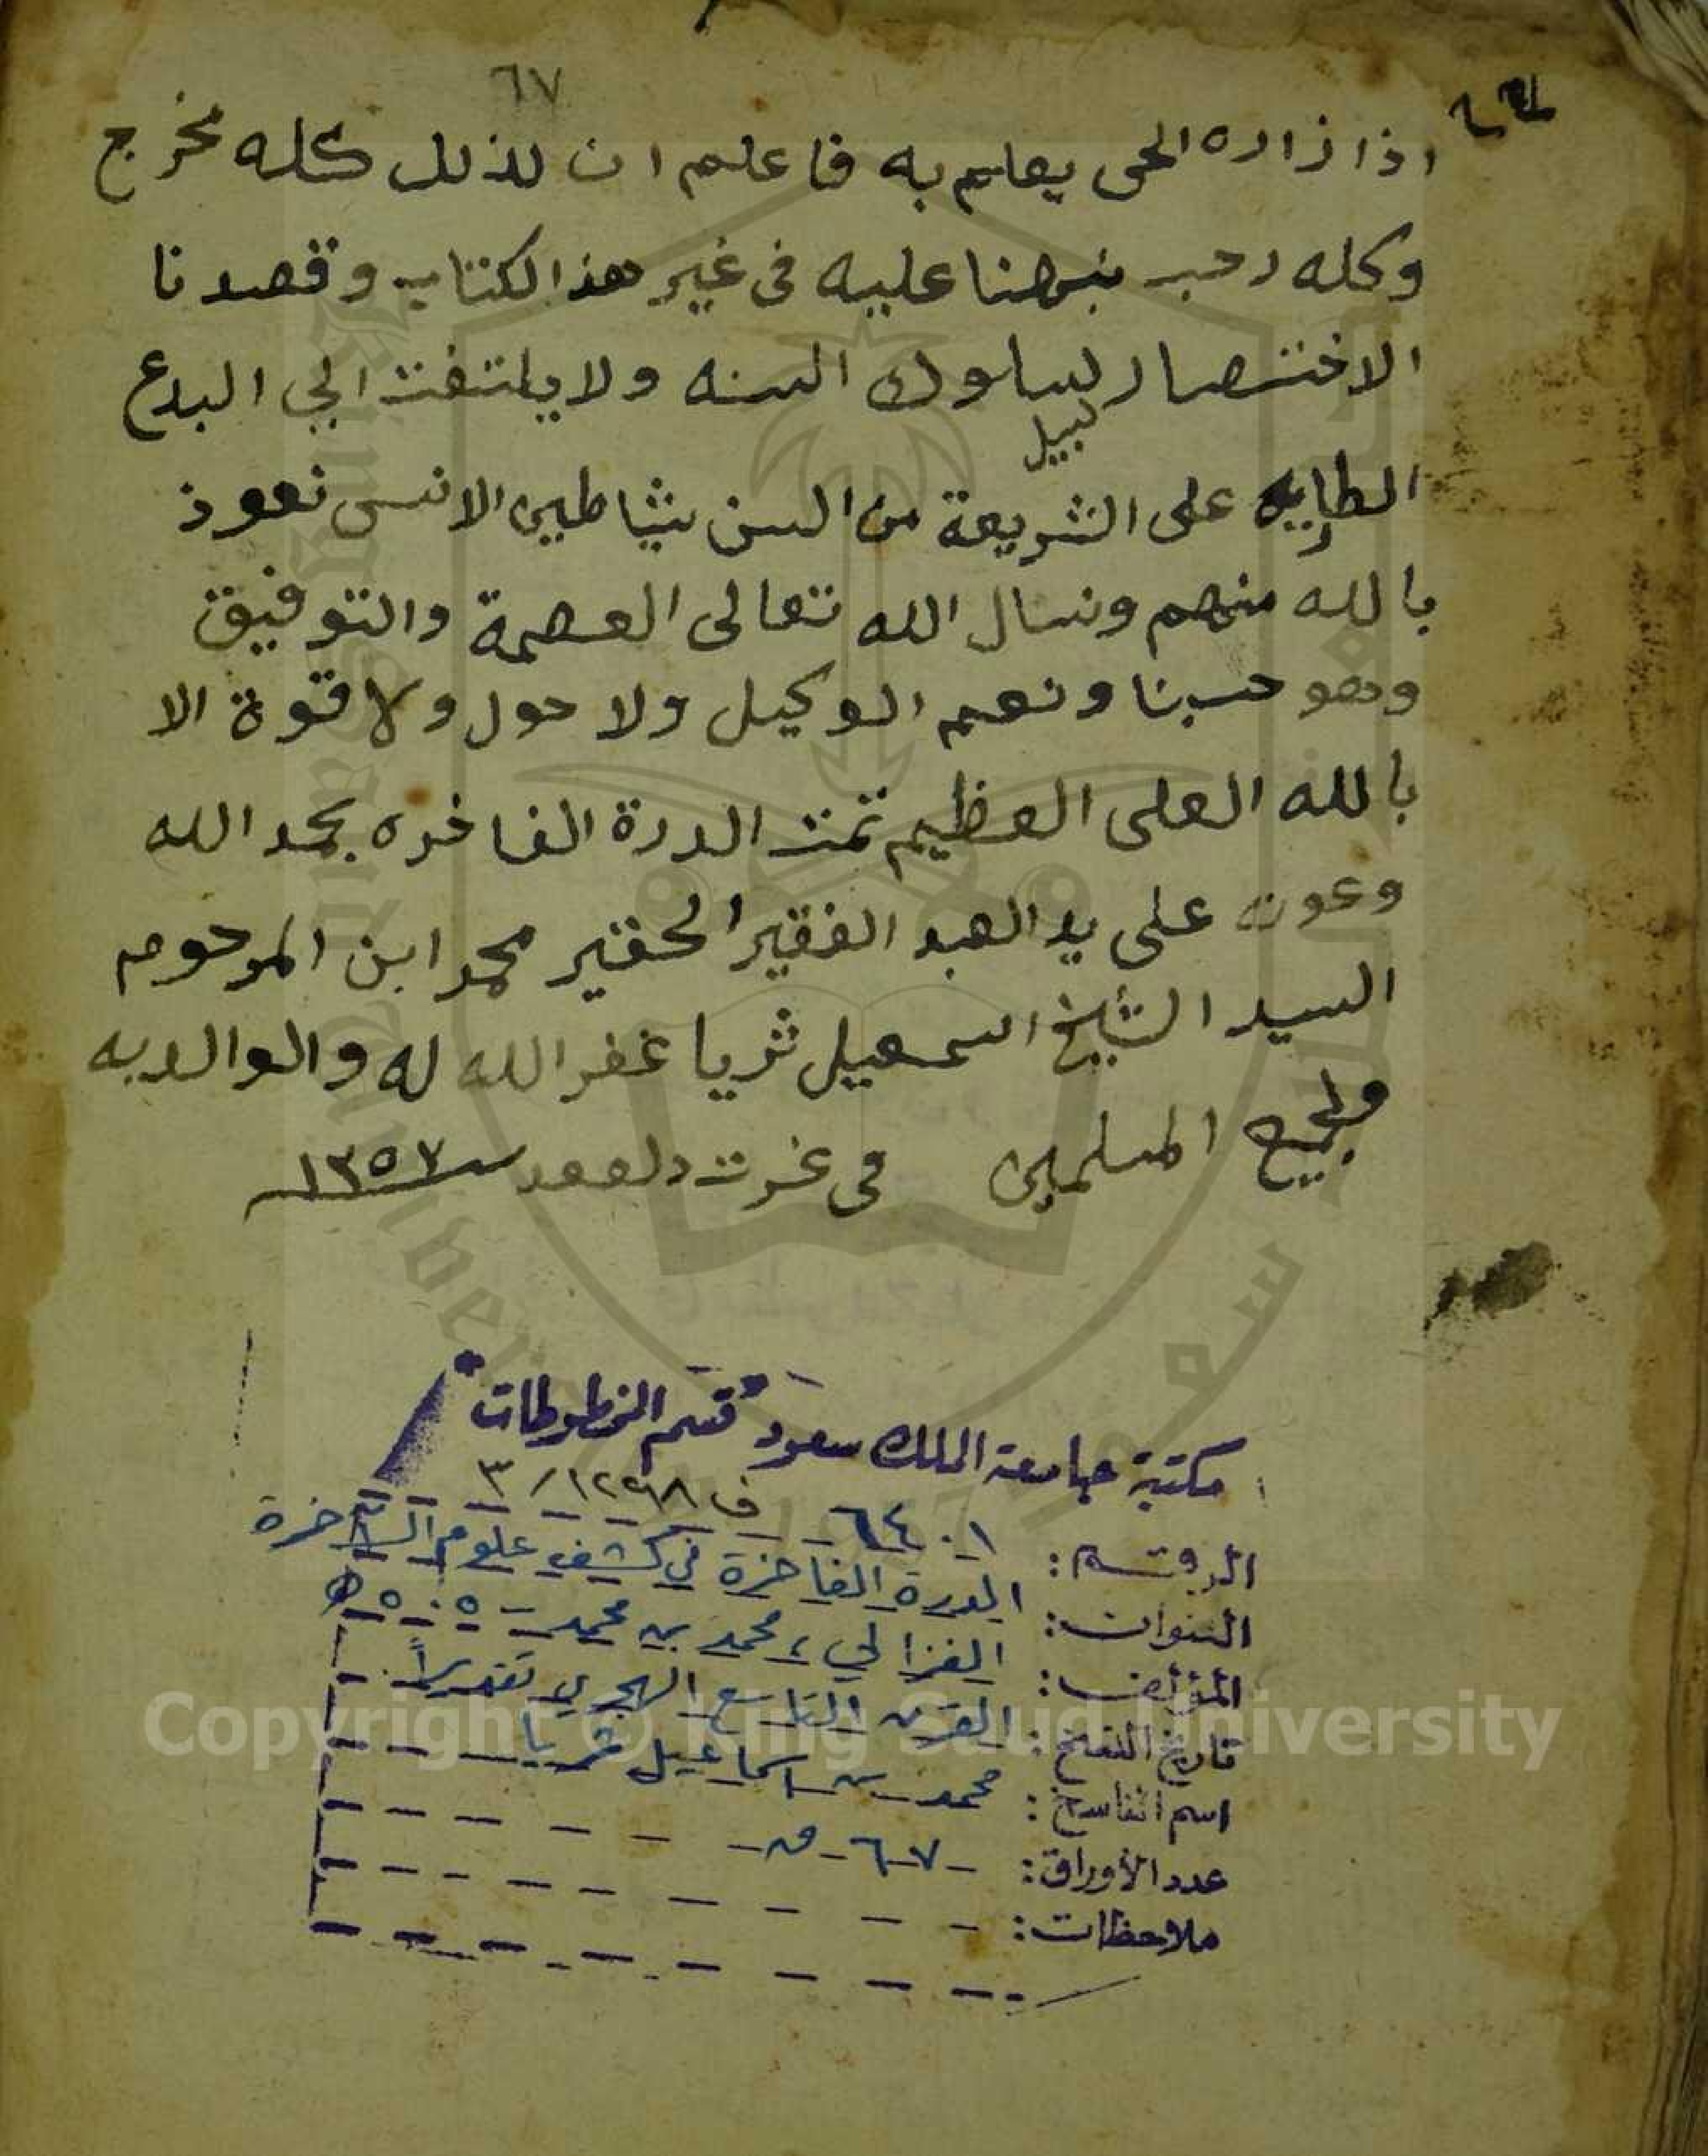 ٦٧
اذا زاره الحى يعلم به فاعلم ان لذلك كله مخرج
وكله رحب نبهنا عليه فى غير هذا الكتاب وقصدنا
الاختصار لسلوك السنه ولا يلتفت الى البدع
على الشريعة من السن شياطين الانس نعوذ
بالله منهم ونسال الله تعالى العصمة والتوفيق
وهو حسبنا ونعم الوكيل ولا حول ولا قوة الا
بالله العلى العظيم تمت الدرة الفاخره بحمد الله
وعونه على يد العبد الفقير الحقير محمد ابن المرحوم
السيد الشيخ اسمعيل ثريا غفر الله له والوالديه
ولجميع المسلمين فى غرت سنة ١٢٥٧
مكتبة جامعة الملك سعود "قسم المخطوطات"
الرقم: ٦٤٠١ ف ٣/١٢٩٨
العنوان: الدرة الفاخرة في كشف علوم الآخرة
المؤلف: الغزالي، محمد بن محمد - ٥٠٥ ه
تاريخ النسخ: القرن التاسع الهجري تقديراً
اسم الناسخ: محمد بن اسماعيل ثريا
عدد الأوراق: ٦٧ ق
ملاحظات:
Copyright © King Saud University